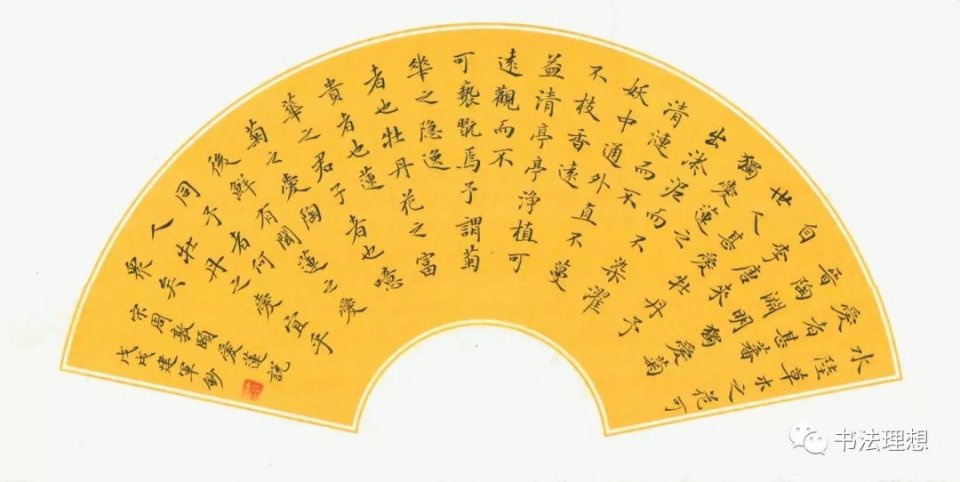 水陸草木之花可
愛者甚蕃
晉陶淵明獨愛菊
自李唐來
世人甚愛牡丹予
獨愛蓮之
出淤泥而不染濯
清漣而不
妖中通外直不蔓
不枝香遠
益清亭亭淨植可
遠觀而不
可褻翫焉予謂菊
華之隐逸
者也牡丹花之富
貴者也蓮
華之君子者也噫
菊之愛陶
後鮮有聞蓮之愛
同予者何
人牡丹之愛宜乎
眾矣
宋周敦頤愛蓮說
戊戌建軍鈔
书法理想